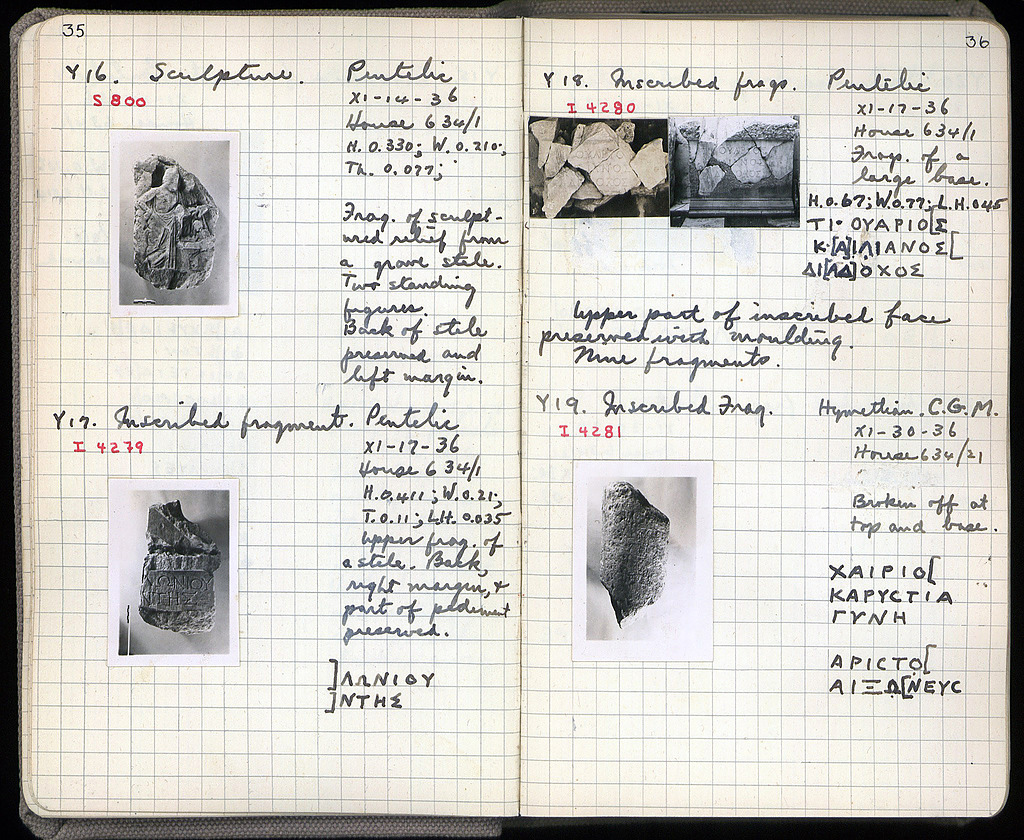 35
Y 16. Sculpture. Pentelic
S 800
XI-14-36
House 634/1
H. 0.330; W. 0.210;
Th. 0.077;
Frag. of sculpt-
ured relief from
a grave stele.
Two standing
figures.
Back of stele
preserved and
left margin.
Y 17. Inscribed fragment. Pentelic
I 4279
XI-17-36
House 634/1
H. 0.411; W. 0.21;
T. 0.11; L.H. 0.035
Upper frag. of
a stele. Back,
right margin, +
part of pediment
preserved.
]ΛΩΝΙΟΥ
]ΝΤΗΣ
36
Y 18. Inscribed frags. Pentelic
I 4280
XI-17-36
House 634/1
Frag. of a
large base.
H. 0.67; W. 0.77; L.H. 0.045
ΤΙ· ΟΥΑΡΙΟ[Σ
Κ[Λ]ΙΛΙΑΝΟΣ[
ΔΙ[ΑΔ]ΟΧΟΣ
Upper part of inscribed face
preserved with moulding.
Nine fragments.
Y 19. Inscribed Frag. Hymettian. C.G.M.
I 4281
XI-30-36
House 634/21
Broken off at
top and base.
ΧΑΙΡΙΟ[
ΚΑΡΥCΤΙΑ
ΓΥΝΗ
ΑΡΙCΤΟ[
ΑΙΞΩ[ΝΕΥC